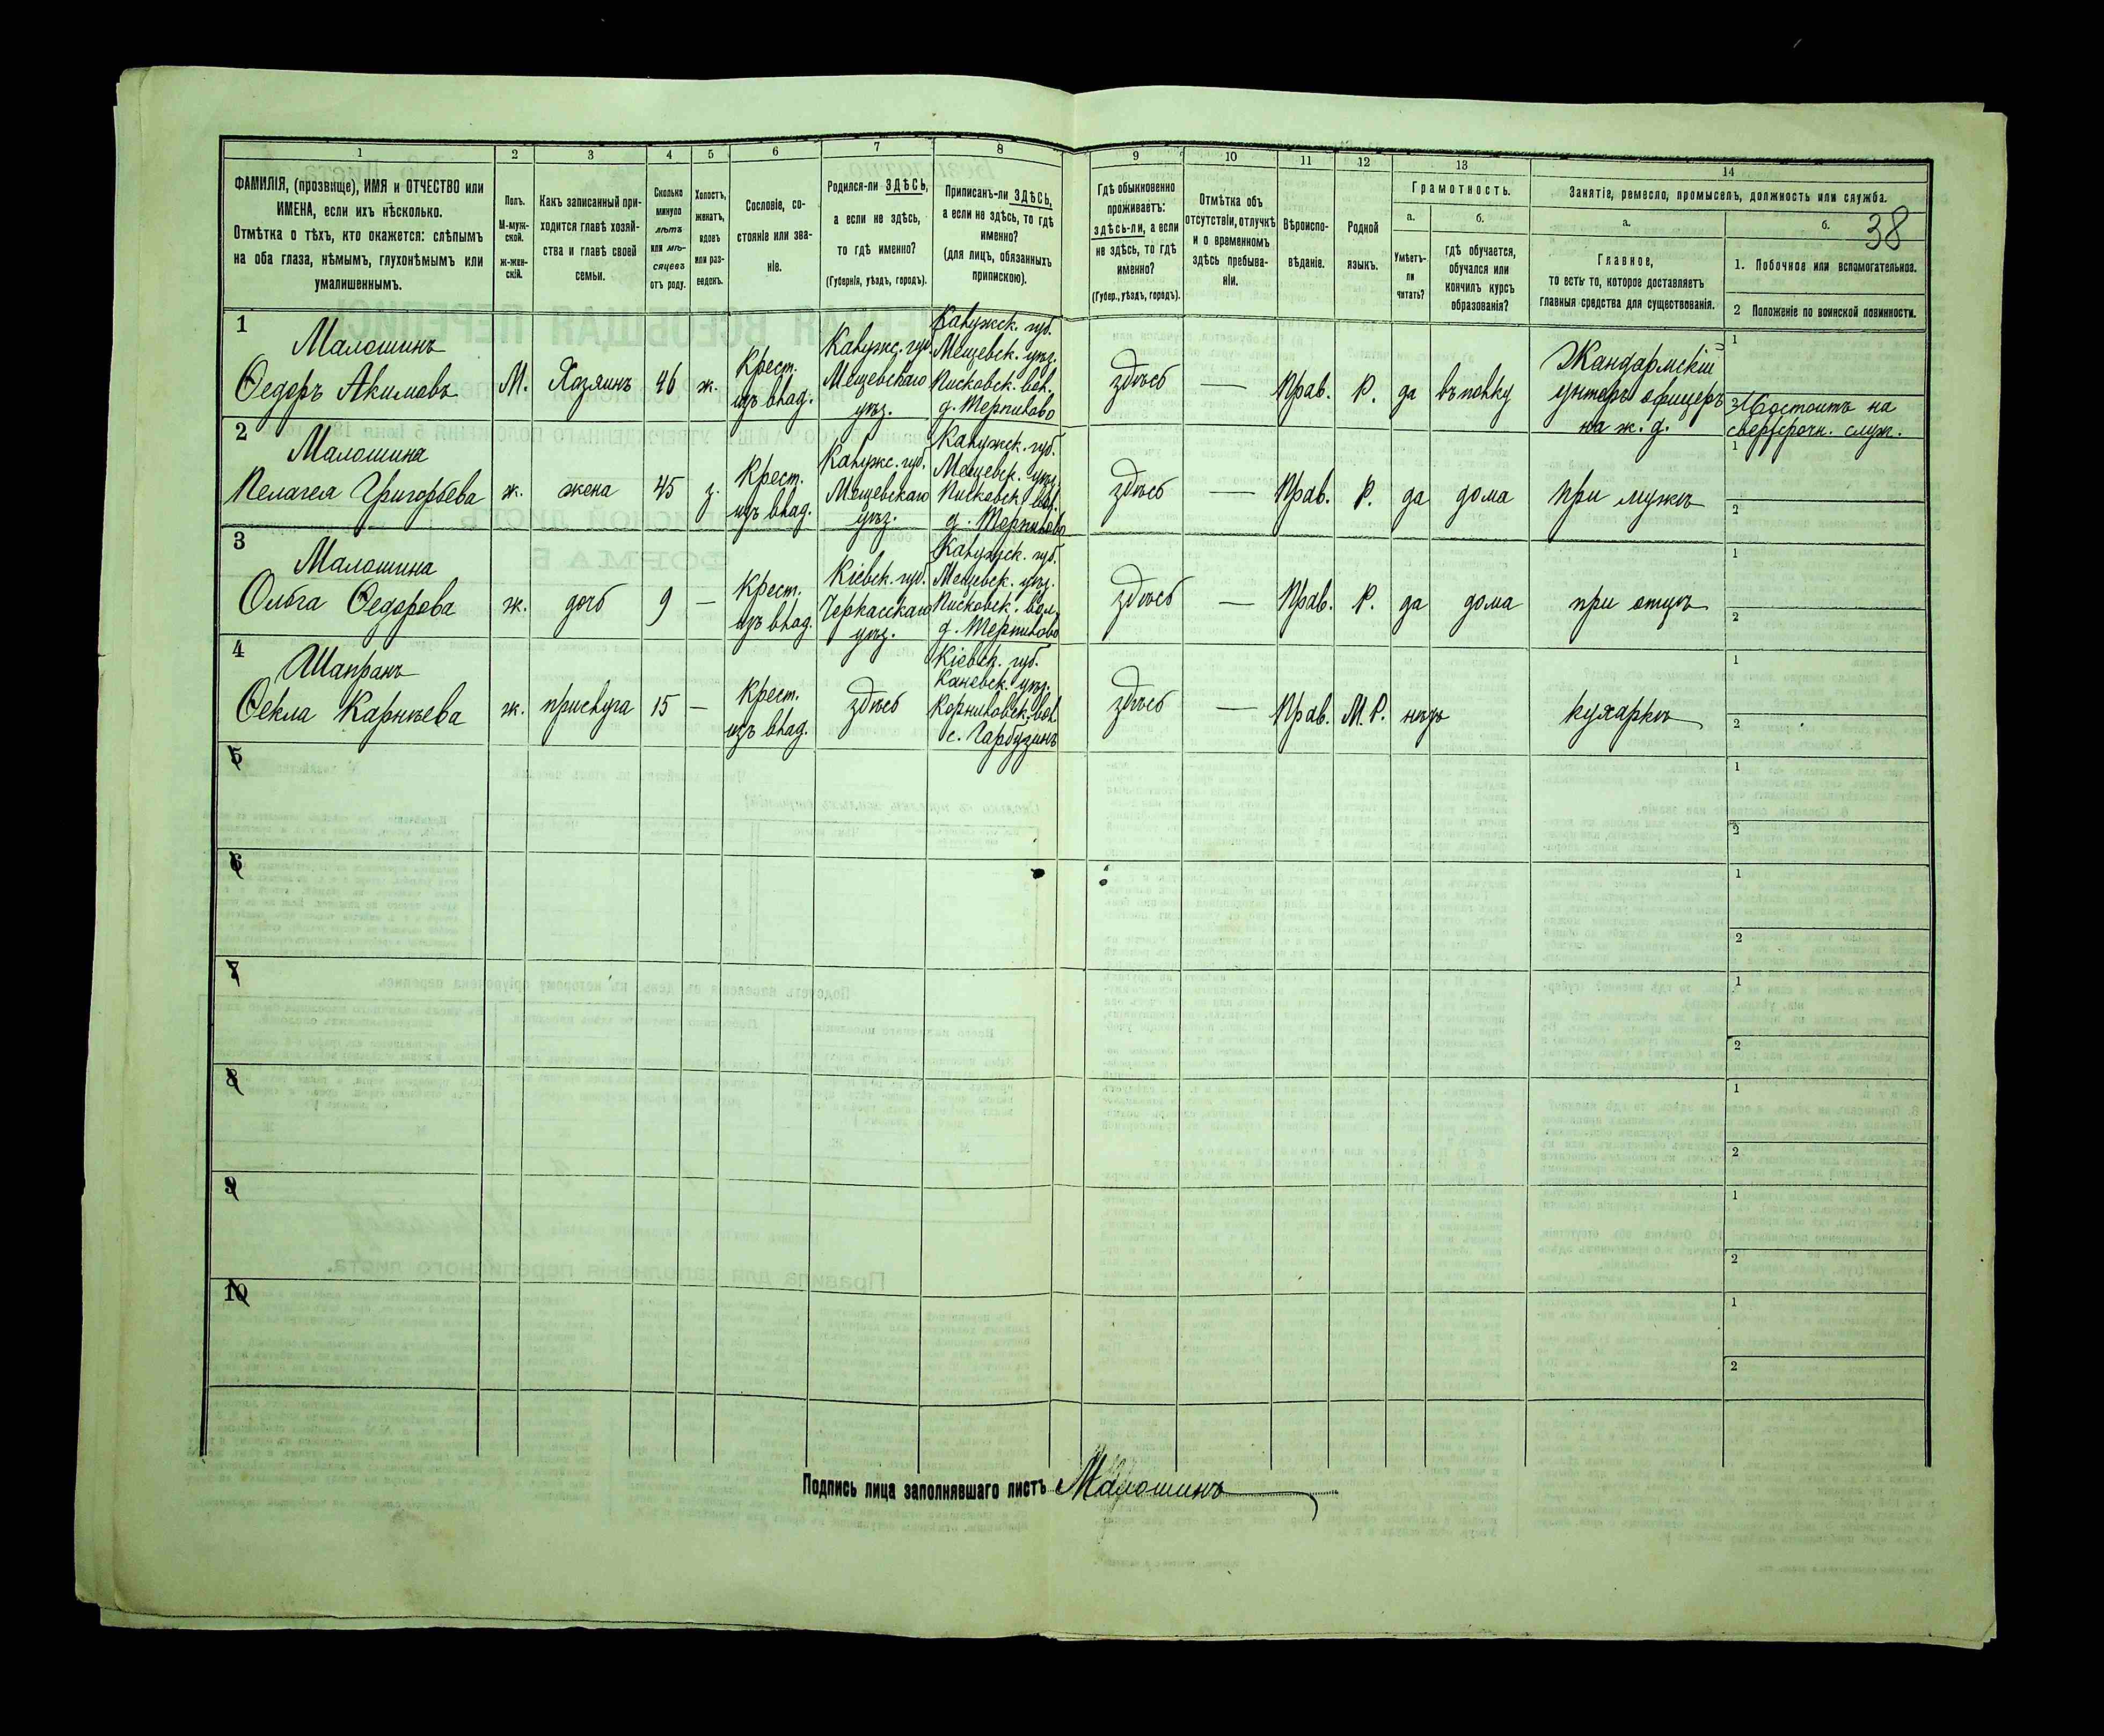 38
1 2 3 4 5 6 7 8 9 10 11 12 13 14
ФАМИЛІЯ, (прозвище), ИМЯ и ОТЧЕСТВО или
ИМЕНА, если ихъ нѣсколько.
Отмѣтка о тѣхъ, кто окажется: слѣпымъ
на оба глаза, нѣмымъ, глухонѣмымъ или
умалишеннымъ.
Полъ.
М-муж-
ской.
ж-жен-
скій.
Какъ записанный при-
ходится главѣ хозяй-
ства и главѣ своей
семьи.
Сколько
минуло
лѣтъ
или мѣ-
сяцевъ
отъ роду.
Холостъ,
женатъ,
вдовъ
или раз-
веденъ.
Сословіе, со-
стояніе или зва-
ніе.
Родился-ли ЗДѢСЬ,
а если не здѣсь,
то гдѣ именно?
(Губернія, уѣздъ, городъ).
Приписанъ-ли ЗДѢСЬ,
а если не здѣсь, то гдѣ
именно?
(для лицъ, обязанныхъ
припискою).
Гдѣ обыкновенно
проживаетъ:
здѣсь-ли, а если
не здѣсь, то гдѣ
именно?
(Губер., уѣздъ, городъ).
Отмѣтка объ
отсутствіи, отлучкѣ
и о временномъ
здѣсь пребыва-
ніи.
Вѣроиспо-
вѣданіе.
Родной
языкъ.
Грамотность.
а.
Умѣетъ-
ли
читать?
б.
гдѣ обучается,
обучался или
кончилъ курсъ
образованія?
Занятіе, ремесло, промыселъ, должность или служба.
а.
Главное,
то есть то, которое доставляетъ
главныя средства для существованія.
б.
1. Побочное или вспомогательное.
2 Положеніе по воинской повинности.
1
Малошинъ
Ѳедоръ Акимовъ
М.
Хазяинъ
46
ж.
Крест.
изъ влад.
Калужс. губ.
Мещевскаго
уѣз.
Калужск. губ.
Мещевск. уѣз.
Писковск. вол.
д. Терпилово
здѣсь
—
Прав.
Р.
да
въ полку
Жандармскій
унтеръ офицеръ
на ж. д.
1
2 Состоитъ на
сверсрочн. служ.
2
Малошина
Пелагея Григорьева
ж.
жена
45
з.
Крест.
изъ влад.
Калужс. губ.
Мещевскаго
уѣз.
Калужск. губ.
Мещевск. уѣз.
Писковск. вол.
д. Терпилово
здѣсь
—
Прав.
Р.
да
дома
при мужѣ
1
2
3
Малошина
Ольга Ѳедорова
ж.
дочь
9
—
Крест.
изъ влад.
Кіевск. губ.
Черкасскаго
уѣз.
Калужск. губ.
Мещевск. уѣз.
Писковск. вол.
д. Терпилово
здѣсь
—
Прав.
Р.
да
дома
при отцѣ
1
2
4
Шапранъ
Ѳекла Карнѣева
ж.
прислуга
15
—
Крест.
изъ влад.
здѣсь
Кіевск. губ.
Каневск. уѣз.
Корниловск. вол.
с. Гарбузинъ
здѣсь
—
Прав.
М. Р.
нѣтъ
кухарка
1
2
5
1
2
6
1
2
7
1
2
8
1
2
9
1
2
10
1
2
Подпись лица заполнявшаго листъ Малошинъ